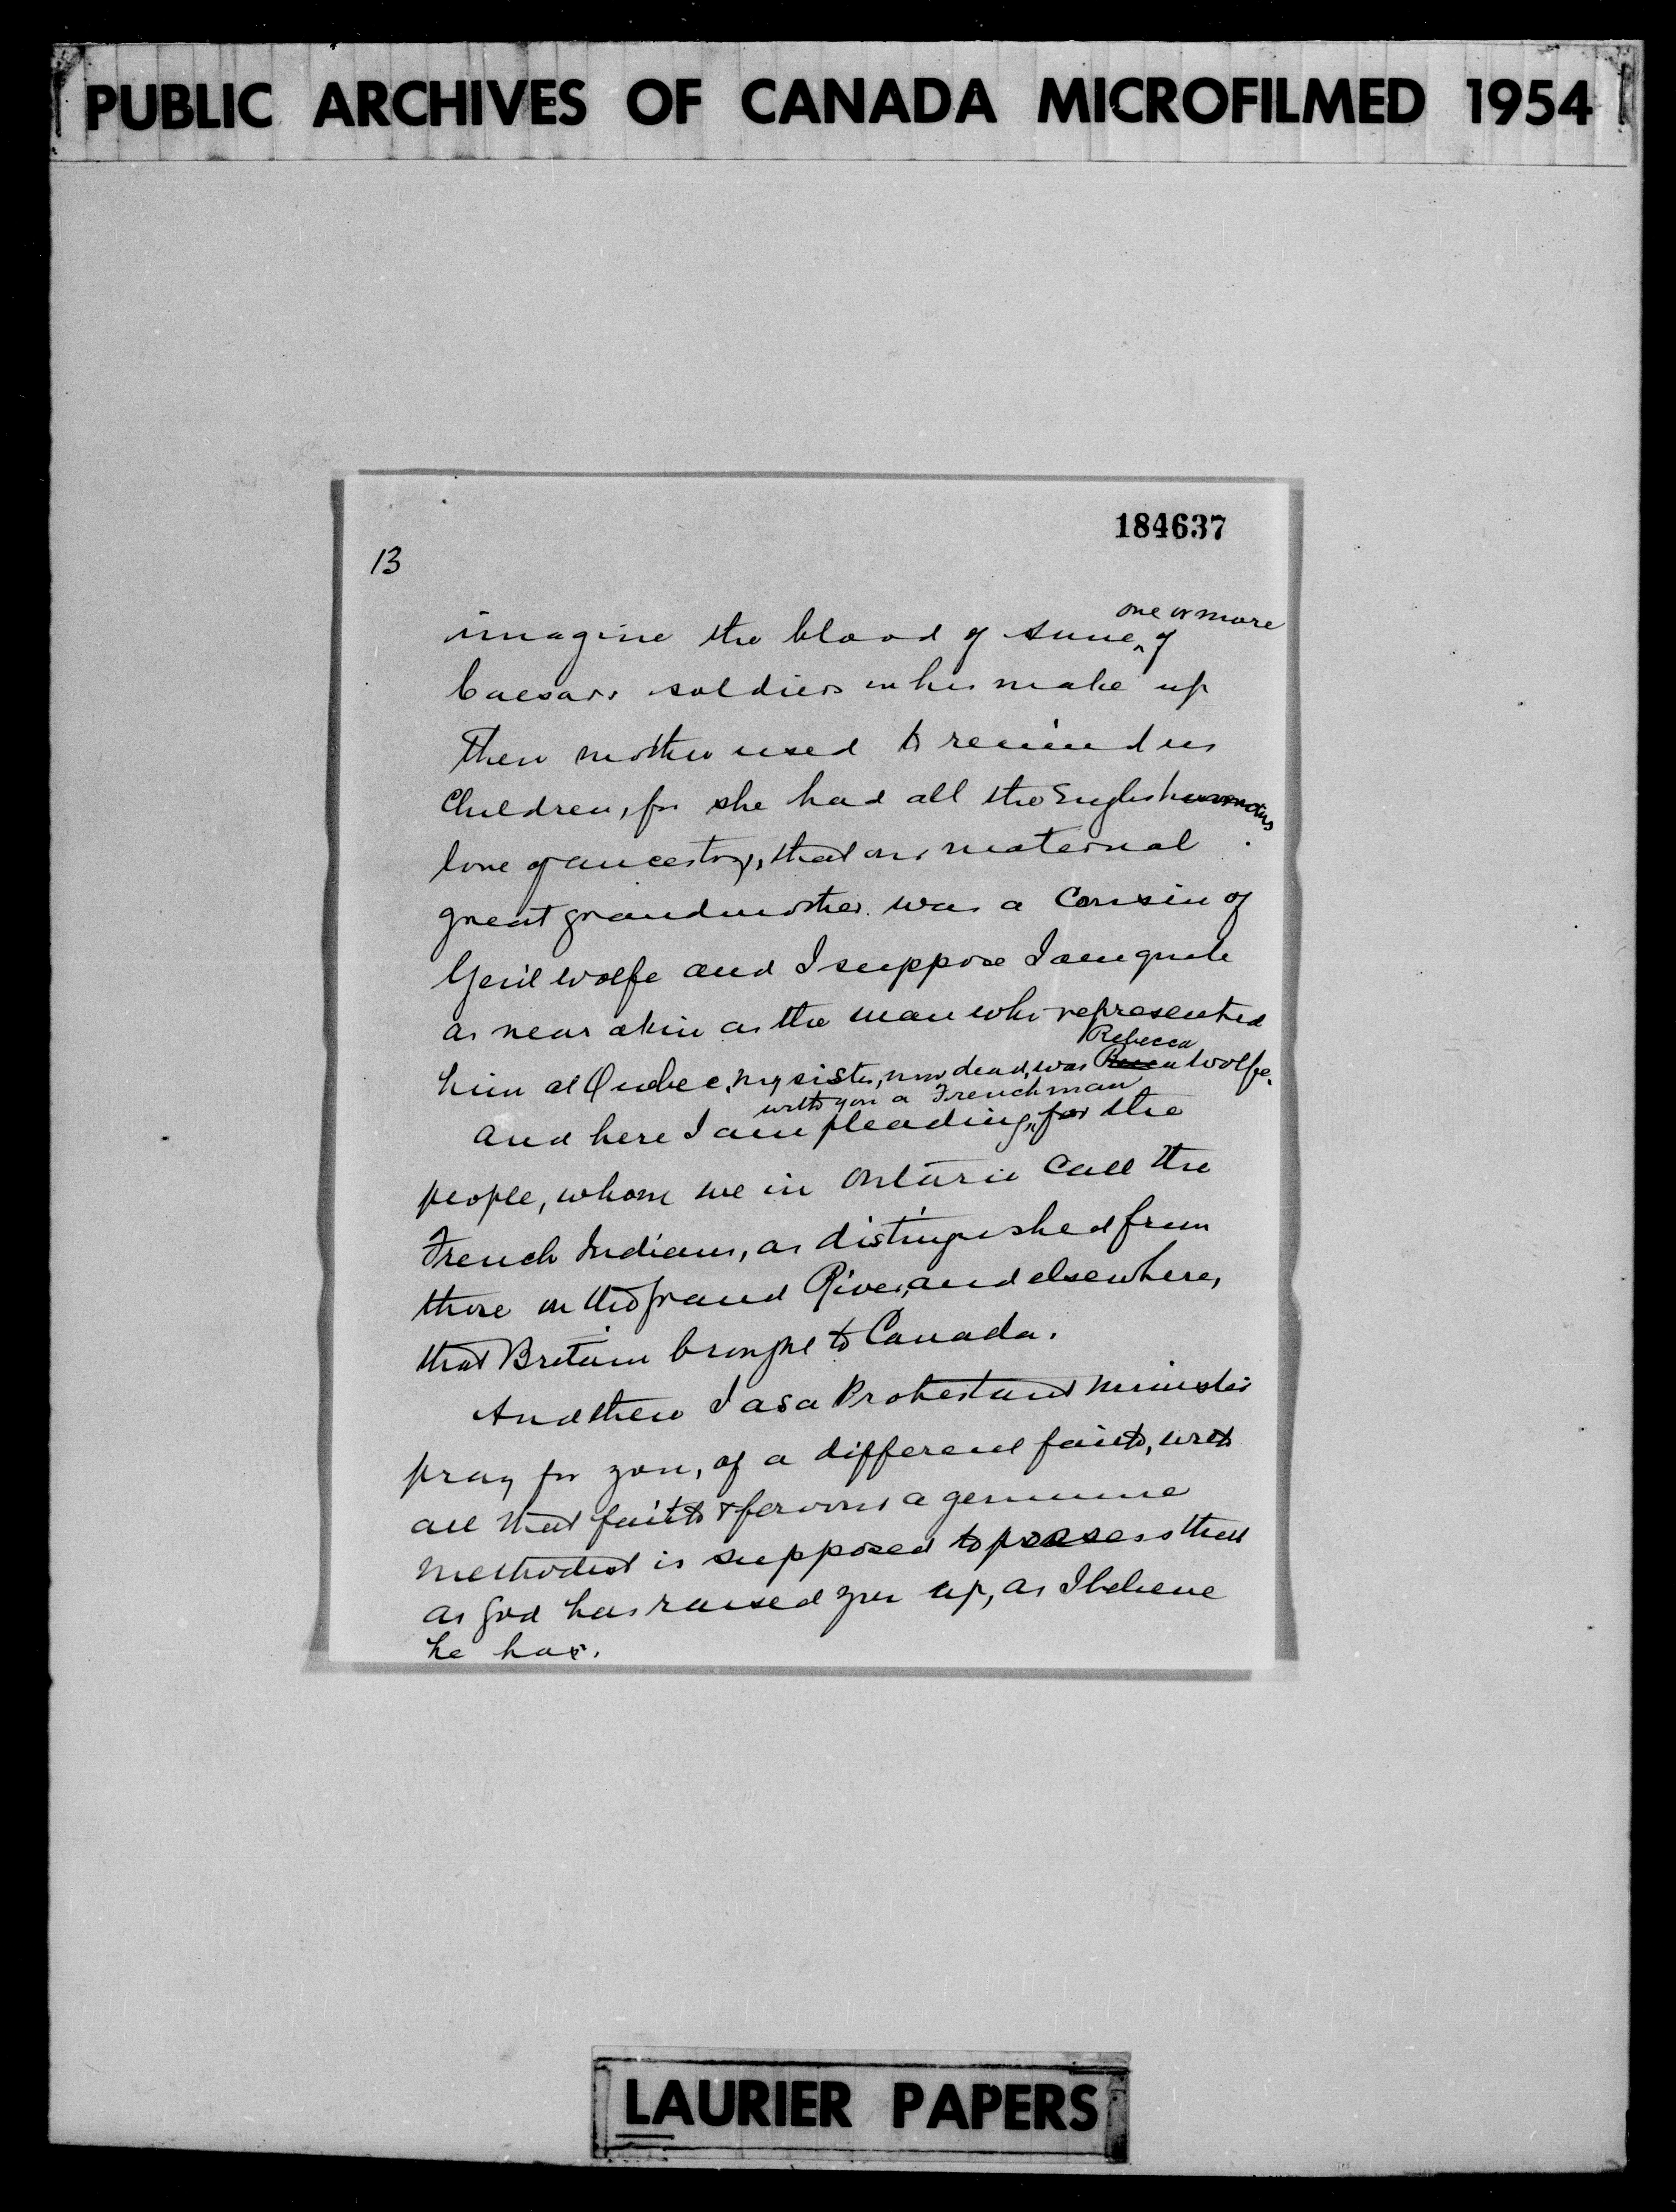 PUBLIC ARCHIVES OF CANADA MICROFILMED 1954
184637
13
one or more
imagine the blood of some ^ of
Caesars soldiers in his make up
Then mother used to remind us
Children, for she had all the Englishwomans
love of ancestry, that our maternal
great grandmother was a Cousin of
Gen'l Wolfe and I suppose I am quite
as near akin as the man who represented
Rebecca
him at Quebec, my sister, now dead, was Wolfe.
with you a Frenchman
And here I am pleading, for the
people, whom we in Ontario call the
French Indians, as distinguished from
those on the Grand River, and elsewhere,
that Britain brought to Canada.
And then I as a Protestant minister
pray for you, of a different faith, with
all that faith & fervour a genuine
methodist is supposed to possess that
as God has raised you up, as I believe
he has.
LAURIER PAPERS